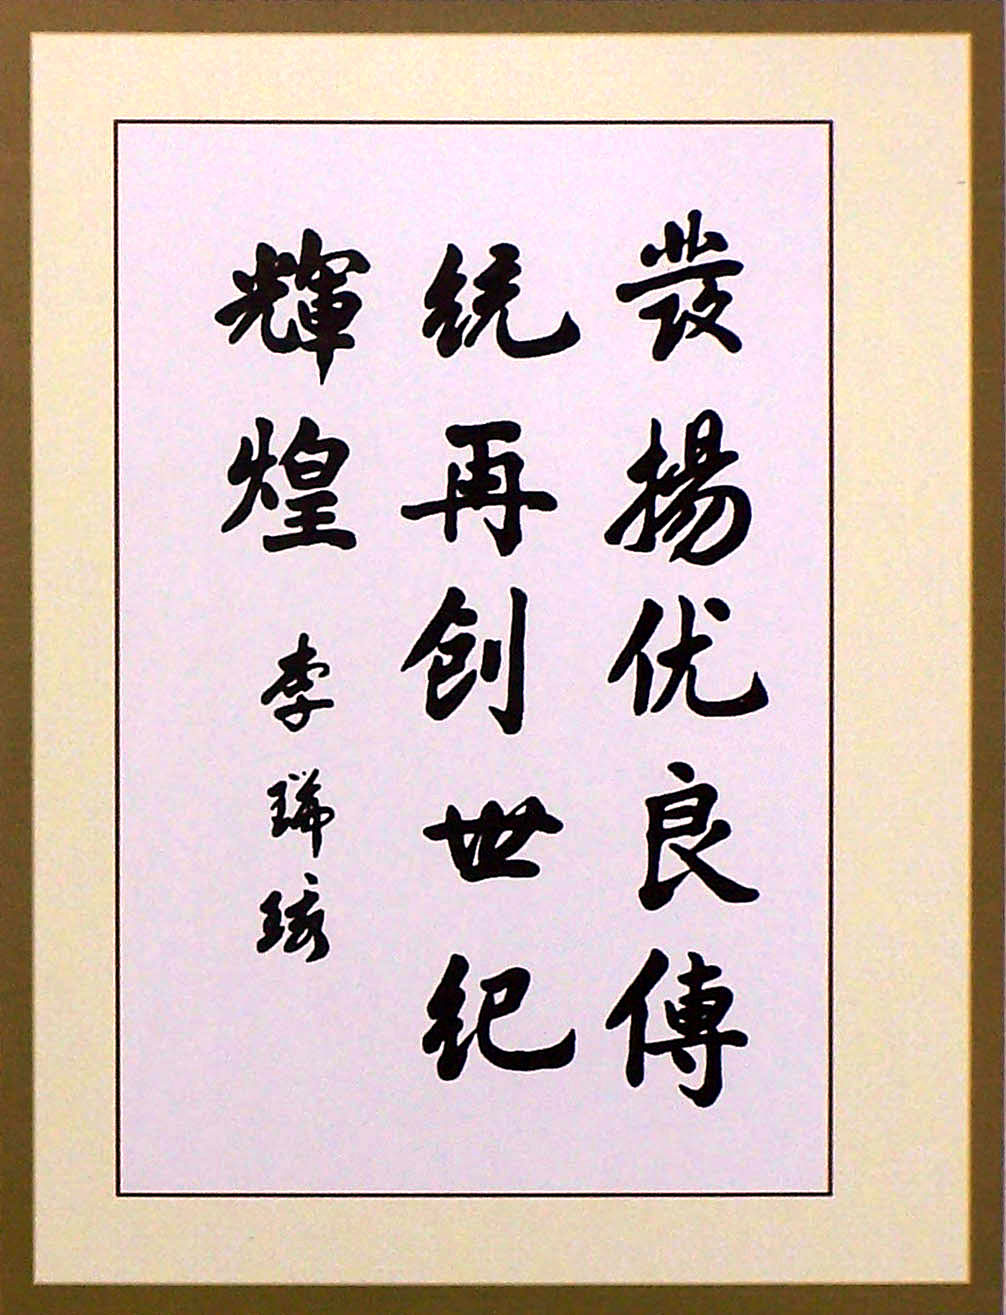 發揚优良傳
統再創世紀
輝煌 李瑞環